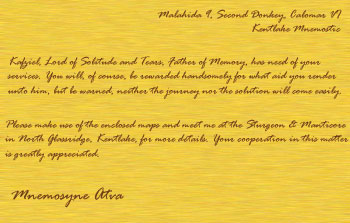 Malahida 9, Second Donkey, Calomar VI
Kentlake Mnemostic
Kafziel, Lord of Solitude and Tears, Father of Memory, has need of your
services. You will, of course, be rewarded handsomely for what aid you render
unto him, but be warned, neither the journey nor the solution will come easily.
Please make use of the enclosed maps and meet me at the Sturgeon & Manticore
in North Glassridge, Kentlake, for more details. Your cooperation in this matter
is greatly appreciated.
Mnemosyne Atva